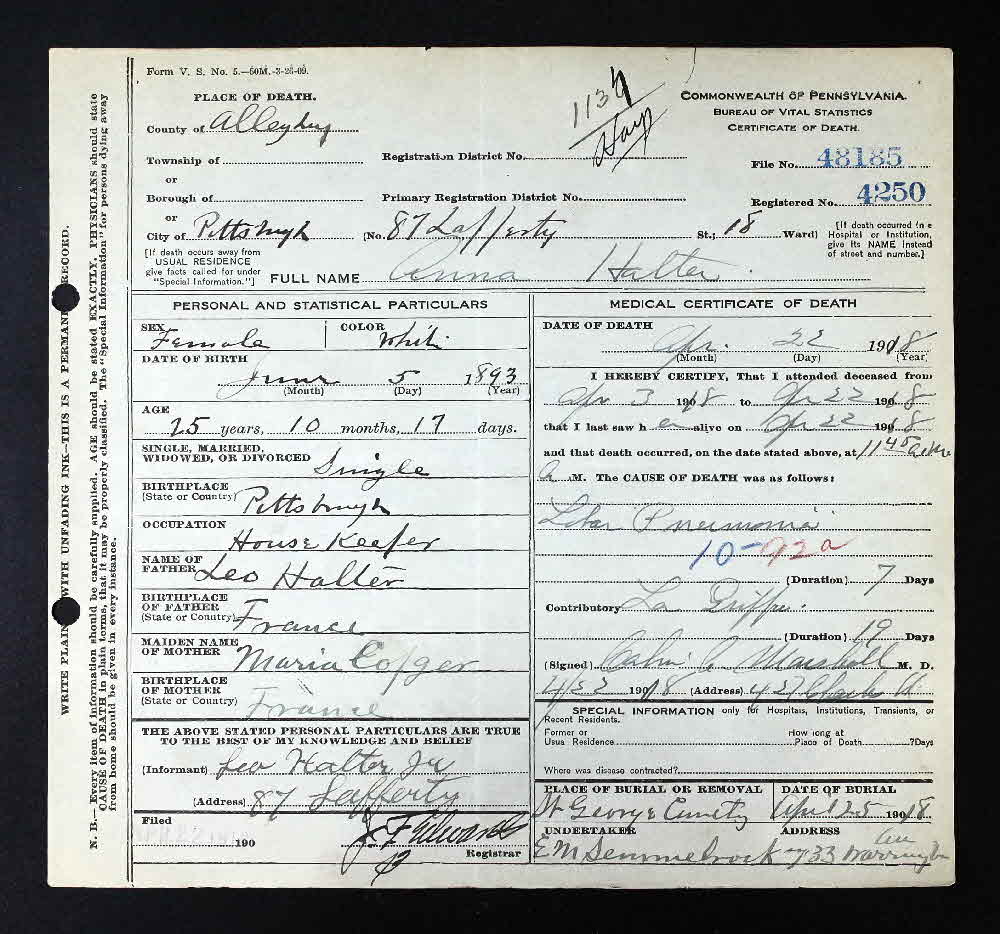 Form V. S. No. 5.—50M.-3-26-09.
PLACE OF DEATH.
County of Allegheny
Township of
or
Borough of
or
City of Pittsburgh (No. 87 Lafferty St.; 18 Ward)
[If death occurs away from USUAL RESIDENCE give facts called for under "Special Information."]
Registration District No.
Primary Registration District No.
1134
COMMONWEALTH OF PENNSYLVANIA.
BUREAU OF VITAL STATISTICS
CERTIFICATE OF DEATH.
File No. 48185
Registered No. 4250
[If death occurred in a Hospital or Institution, give its NAME instead of street and number.]
FULL NAME Anna Halter
PERSONAL AND STATISTICAL PARTICULARS
SEX Female COLOR White
DATE OF BIRTH
June 5 1893
(Month) (Day) (Year)
AGE
25 years, 10 months, 17 days.
SINGLE, MARRIED,
WIDOWED, OR DIVORCED Single
BIRTHPLACE
(State or Country) Pittsburgh
OCCUPATION
House Keeper
NAME OF
FATHER Leo Halter
BIRTHPLACE
OF FATHER
(State or Country) France
MAIDEN NAME
OF MOTHER Maria
BIRTHPLACE
OF MOTHER
(State or Country) France
THE ABOVE STATED PERSONAL PARTICULARS ARE TRUE
TO THE BEST OF MY KNOWLEDGE AND BELIEF
(Informant) Leo Halter Jr
(Address) 87 Lafferty
Filed
190
Registrar
MEDICAL CERTIFICATE OF DEATH
DATE OF DEATH
Apr. 22 1918
(Month) (Day) (Year)
I HEREBY CERTIFY, That I attended deceased from
Apr 3 1918 to Apr 22 1918
that I last saw h er alive on Apr 22 1918
and that death occurred, on the date stated above, at 11 45
A. M. The CAUSE OF DEATH was as follows:
Lobar Pneumonia
10-92a
(Duration) 7 Days
Contributory La Grippe
(Duration) 19 Days
(Signed) Marshall M. D.
1918 (Address)
SPECIAL INFORMATION only for Hospitals, Institutions, Transients, or
Recent Residents.
Former or
Usual Residence
How long at
Place of Death ?Days
Where was disease contracted?
PLACE OF BURIAL OR REMOVAL
St George Cemetery
DATE OF BURIAL
April 25 1918
UNDERTAKER
E M Semmelrock
ADDRESS
Warrington Ave
WRITE PLAINLY WITH UNFADING INK—THIS IS A PERMANENT RECORD.
N. B.—Every item of information should be carefully supplied. AGE should be stated EXACTLY. PHYSICIANS should state
CAUSE OF DEATH in plain terms, that it may be properly classified. The "Special Information" for persons dying away
from home should be given in every instance.